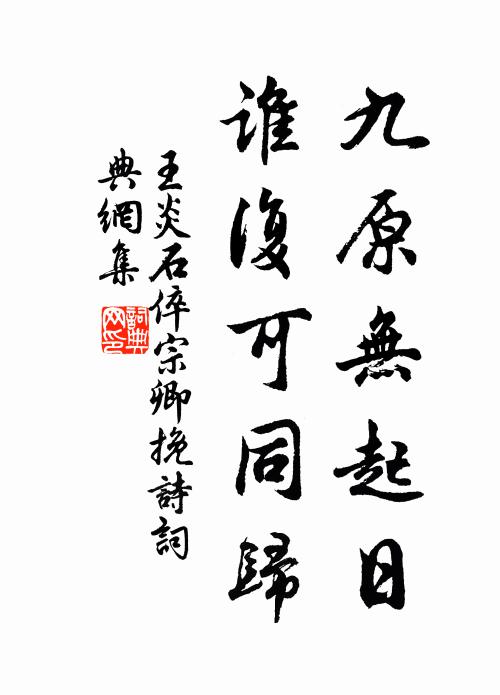 九原無起日
誰復可同歸
王炎石倅宗卿挽詩詞
典網集
詞典
网印